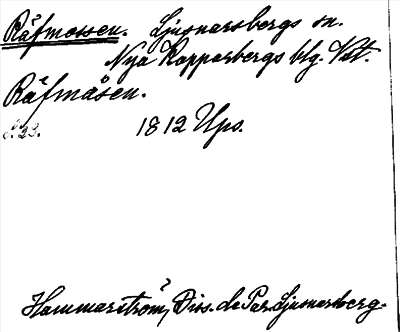 Räfmossen. Ljusnarsbergs sn.
Nya Kopparbergs blg. Vstm.
Räfmåsen.
S. 23. 1812 Ups.
Hammarström, Diss. de Par. Ljusnarsberg.